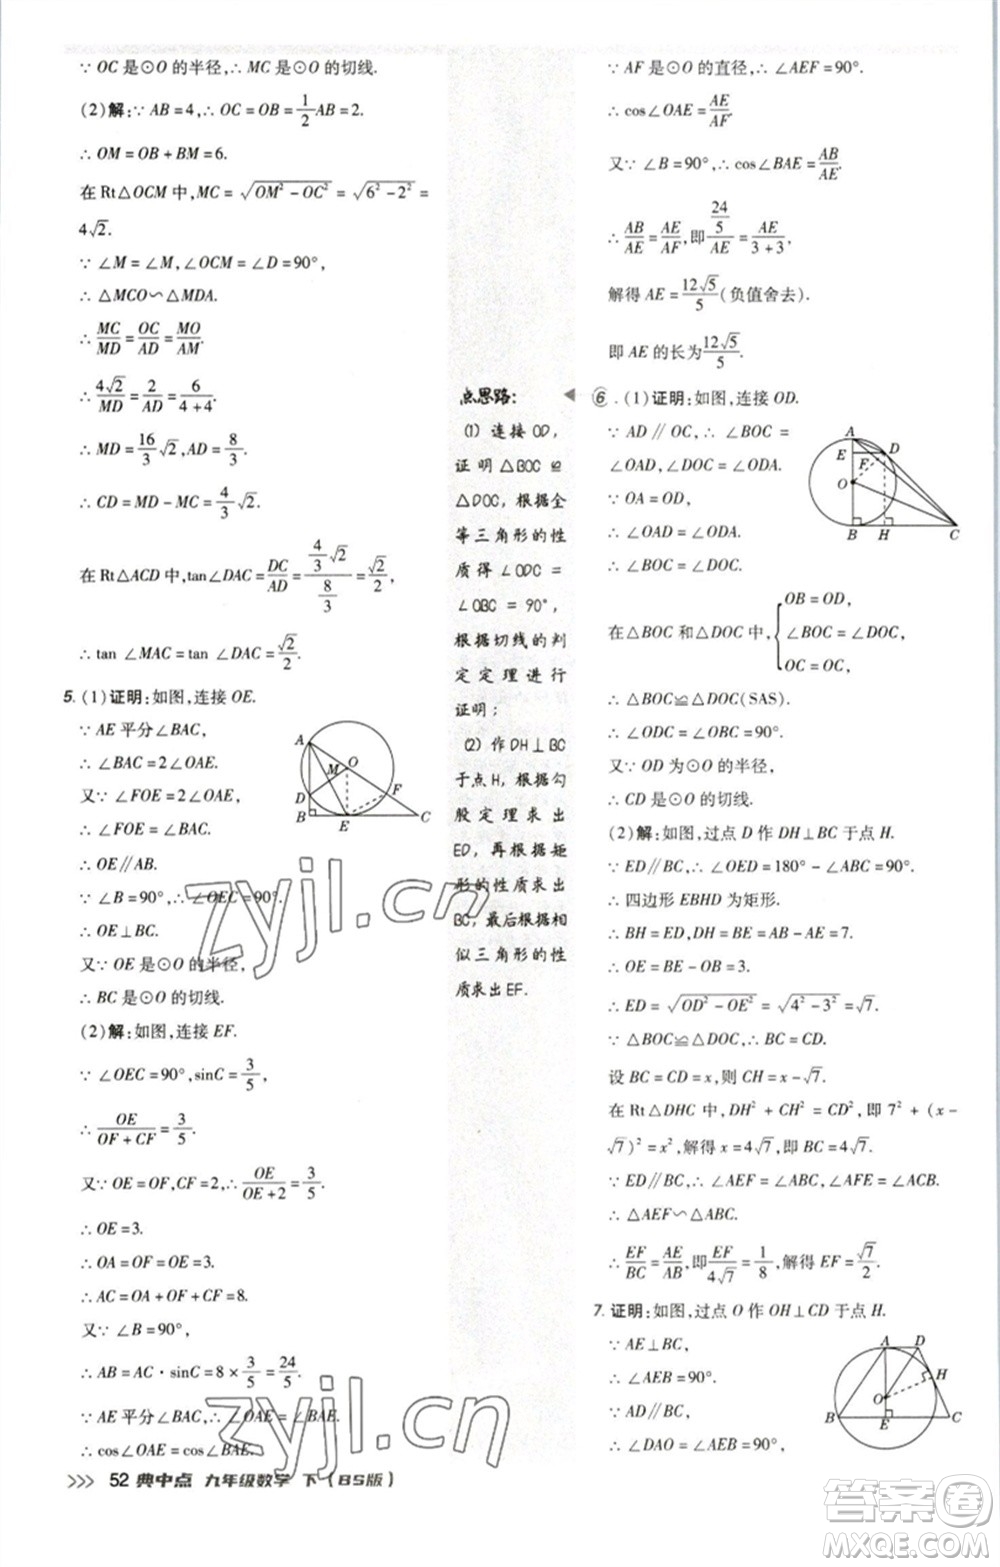 ∵ OC 是⊙O 的半径,∴ MC 是⊙O 的切线.
(2)解:∵ AB = 4,∴ OC = OB = 1/2 AB = 2.
∴ OM = OB + BM = 6.
在 Rt△OCM 中,MC = √(OM² - OC²) = √(6² - 2²) =
4√2.
∵ ∠M = ∠M,∠OCM = ∠D = 90°,
∴ △MCO∽△MDA.
∴ MC/MD = OC/AD = MO/AM.
∴ 4√2/MD = 2/AD = 6/(4+4).
∴ MD = 16/3 √2,AD = 8/3.
∴ CD = MD - MC = 4/3 √2.
在 Rt△ACD 中,tan∠DAC = DC/AD = (4/3 √2)/(8/3) = √2/2,
∴ tan ∠MAC = tan ∠DAC = √2/2.
5. (1)证明:如图,连接 OE.
∵ AE 平分∠BAC,
∴ ∠BAC = 2∠OAE.
又∵ ∠FOE = 2∠OAE,
∴ ∠FOE = ∠BAC.
∴ OE∥AB.
∵ ∠B = 90°,∴ ∠OEC = 90°.
∴ OE⊥BC.
又∵ OE 是⊙O 的半径,
∴ BC 是⊙O 的切线.
(2)解:如图,连接 EF.
∵ ∠OEC = 90°,sinC = 3/5,
∴ OE/(OF + CF) = 3/5.
又∵ OE = OF,CF = 2,∴ OE/(OE + 2) = 3/5.
∴ OE = 3.
∴ OA = OF = OE = 3.
∴ AC = OA + OF + CF = 8.
又∵ ∠B = 90°,
∴ AB = AC·sinC = 8 × 3/5 = 24/5.
∵ AE 平分∠BAC,∴ ∠OAE = ∠BAE.
∴ cos∠OAE = cos∠BAE.
A
O
M
D
F
B
E
C
点思路:
(1) 连接 OD,
证明△BOC≌
△DOC,根据全
等三角形的性
质得∠ODC =
∠OBC = 90°,
根据切线的判
定定理进行
证明;
(2) 作 DH⊥BC
于点 H,根据勾
股定理求出
ED,再根据矩
形的性质求出
BC,最后根据相
似三角形的性
质求出EF.
∵ AF 是⊙O 的直径,∴ ∠AEF = 90°.
∴ cos∠OAE = AE/AF.
又∵ ∠B = 90°,∴ cos∠BAE = AB/AE.
∴ AB/AE = AE/AF,即 (24/5)/AE = AE/(3+3).
解得 AE = 12√5/5 (负值舍去).
即 AE 的长为 12√5/5.
6. (1)证明:如图,连接 OD.
∵ AD∥OC,∴ ∠BOC =
∠OAD,∠DOC = ∠ODA.
∵ OA = OD,
∴ ∠OAD = ∠ODA.
∴ ∠BOC = ∠DOC.
在△BOC 和△DOC 中,{ OB = OD,
∠BOC = ∠DOC,
OC = OC,
∴ △BOC≌△DOC(SAS).
∴ ∠ODC = ∠OBC = 90°.
又∵ OD 为⊙O 的半径,
∴ CD 是⊙O 的切线.
(2)解:如图,过点 D 作 DH⊥BC 于点 H.
∵ ED∥BC,∴ ∠OED = 180° - ∠ABC = 90°.
∴ 四边形 EBHD 为矩形.
∴ BH = ED,DH = BE = 7.
∴ OE = BE - OB = 3.
∴ ED = √(OD² - OE²) = √(4² - 3²) = √7.
∵ △BOC≌△DOC,∴ BC = CD.
设 BC = CD = x,则 CH = x - √7.
在 Rt△DHC 中,DH² + CH² = CD²,即 7² + (x -
√7)² = x²,解得 x = 4√7,即 BC = 4√7.
∵ ED∥BC,∴ ∠AEF = ∠ABC,∠AFE = ∠ACB.
∴ △AEF∽△ABC.
∴ EF/BC = AE/AB,即 EF/4√7 = 1/8,解得 EF = √7/2.
A
E
F
D
O
B
H
C
7. 证明:如图,过点 O 作 OH⊥CD 于点 H.
∵ AE⊥BC,
∴ ∠AEB = 90°.
∵ AD∥BC,
∴ ∠DAO = ∠AEB = 90°.
A
D
H
O
B
E
C
52 典中点 九年级数学 下(BS版)
zyjl.cn
zyjl.cn
答案圈
MXQE.COM